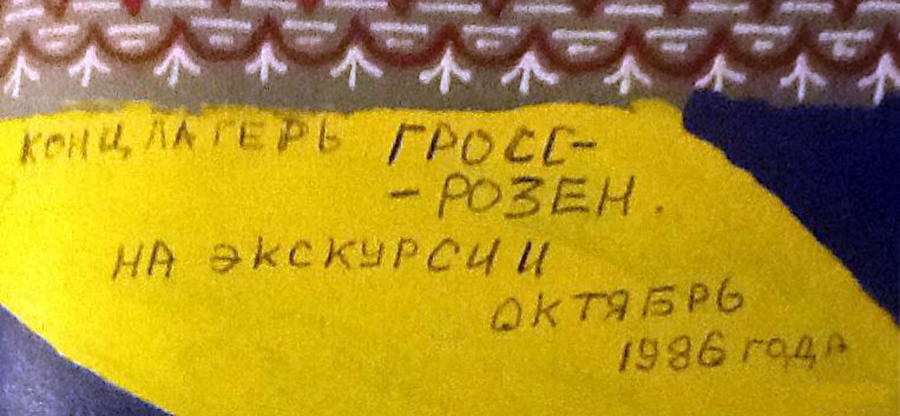 КОНЦЛАГЕРЬ ГРОСС-
-РОЗЕН.
НА ЭКСКУРСИИ
ОКТЯБРЬ
1986 ГОДА